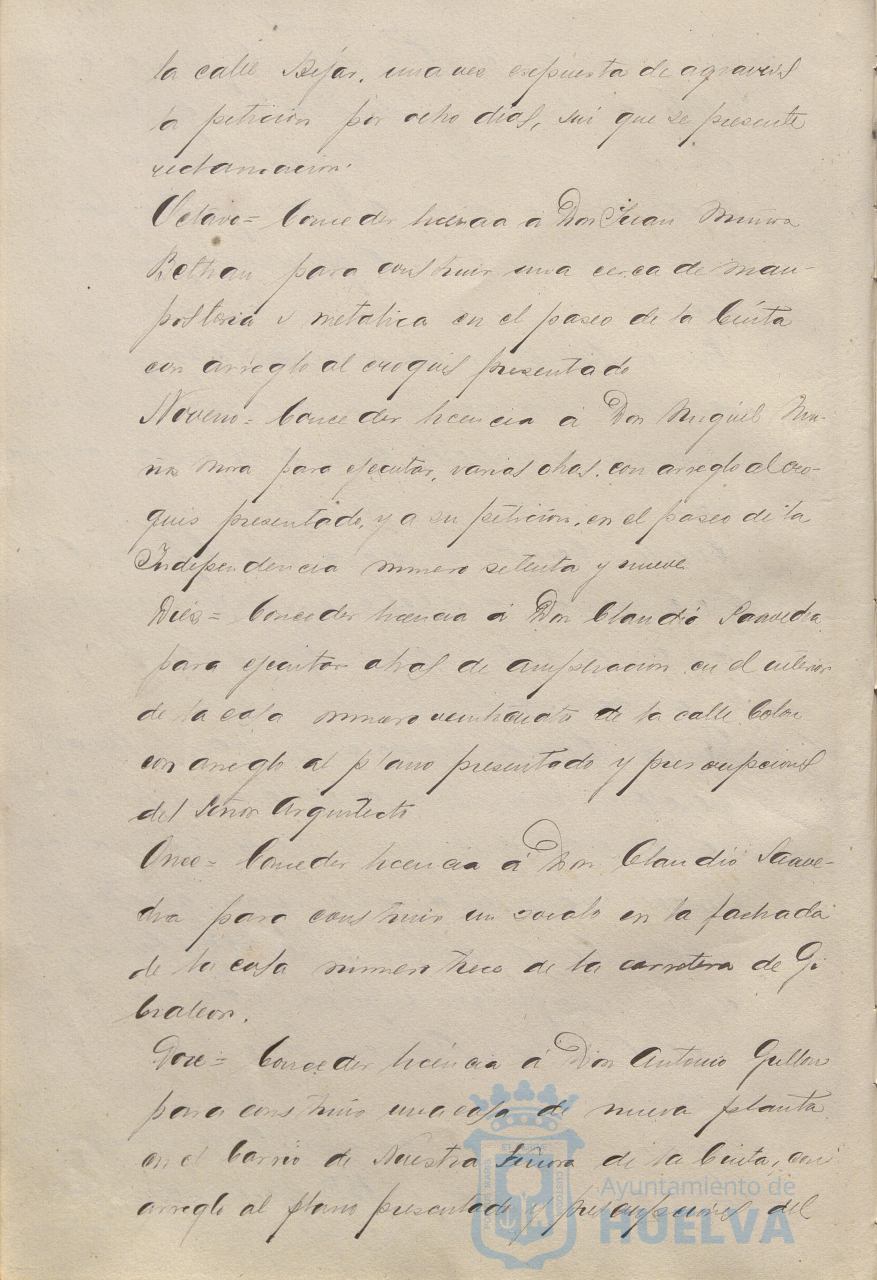 la calle Béjar, una vez expuesta de agravios
la petición por ocho días, sin que se presente
reclamacion.
Octavo= Conceder licencia á Don Juan
Beltran para construir una cerca de mam-
postería y metalica en el paseo de la Cinta
con arreglo al croquis presentado
Noveno= Conceder licencia á Don Miguel
Mora para ejecutar, varias obras, con arreglo al cro-
quis presentado, y a su petición, en el paseo de la
Independencia numero setenta y nueve
Diez= Conceder licencia á Don Claudio Saavedra
para ejecutar obras de ampliacion en el interior
de la casa numero de la calle Colon
con arreglo al plano presentado y prescripciones
del Señor Arquitecto
Once= Conceder licencia á Don Claudio Saave-
dra para construir un zocalo en la fachada
de la casa numero trece de la carretera de Gi
braleon.
Doce= Conceder licencia á Don Antonio Guillen
para construir una casa de nueva planta
en el barrio de Nuestra Señora de la Cinta, con
arreglo al plano presentado y prescripciones del
Ayuntamiento de
HUELVA